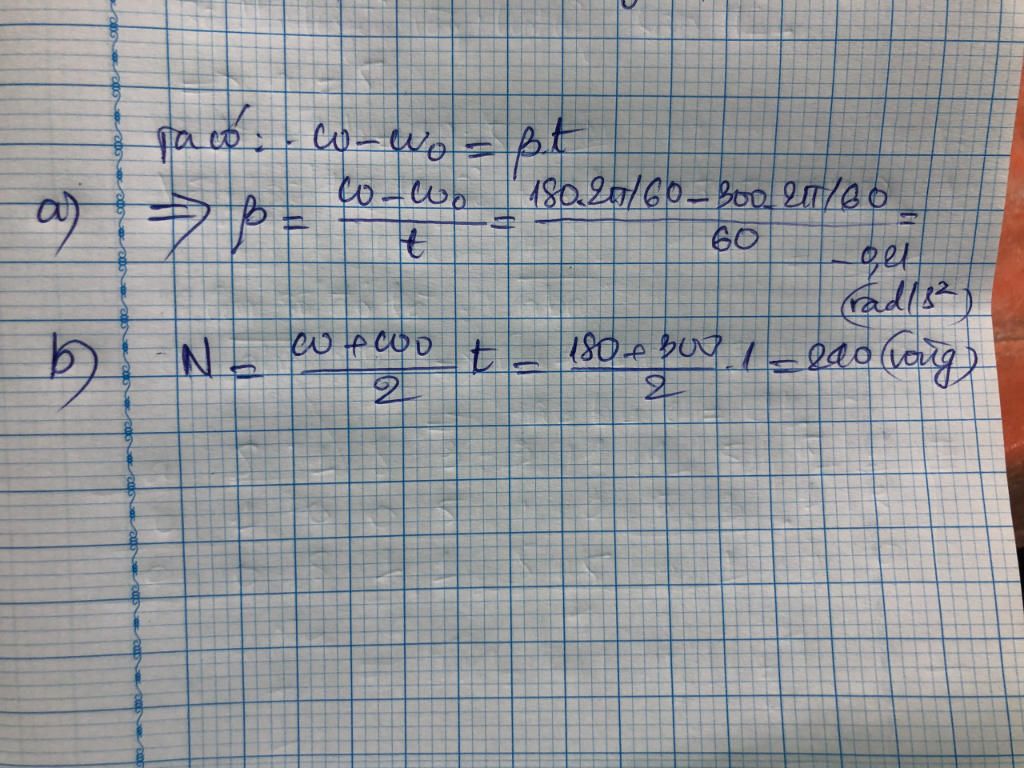 Ta có: ω - ω₀ = βt
a) ⇒ β = (ω - ω₀)/t = (180.2π/60 - 300.2π/60)/60 =
-0,21
(rad/s²)
b) N = (ω + ω₀)/2 t = (180 + 300)/2 . 1 = 240 (vòng)